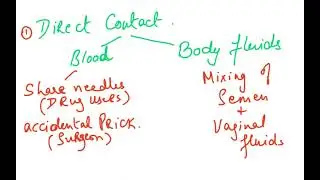 ① Direct Contact.
Blood
Body fluids
Share needles
(DRug uses)
accidental PRick.
(Surgeon)
Mixing of
Semen
+
Vaginal
fluids